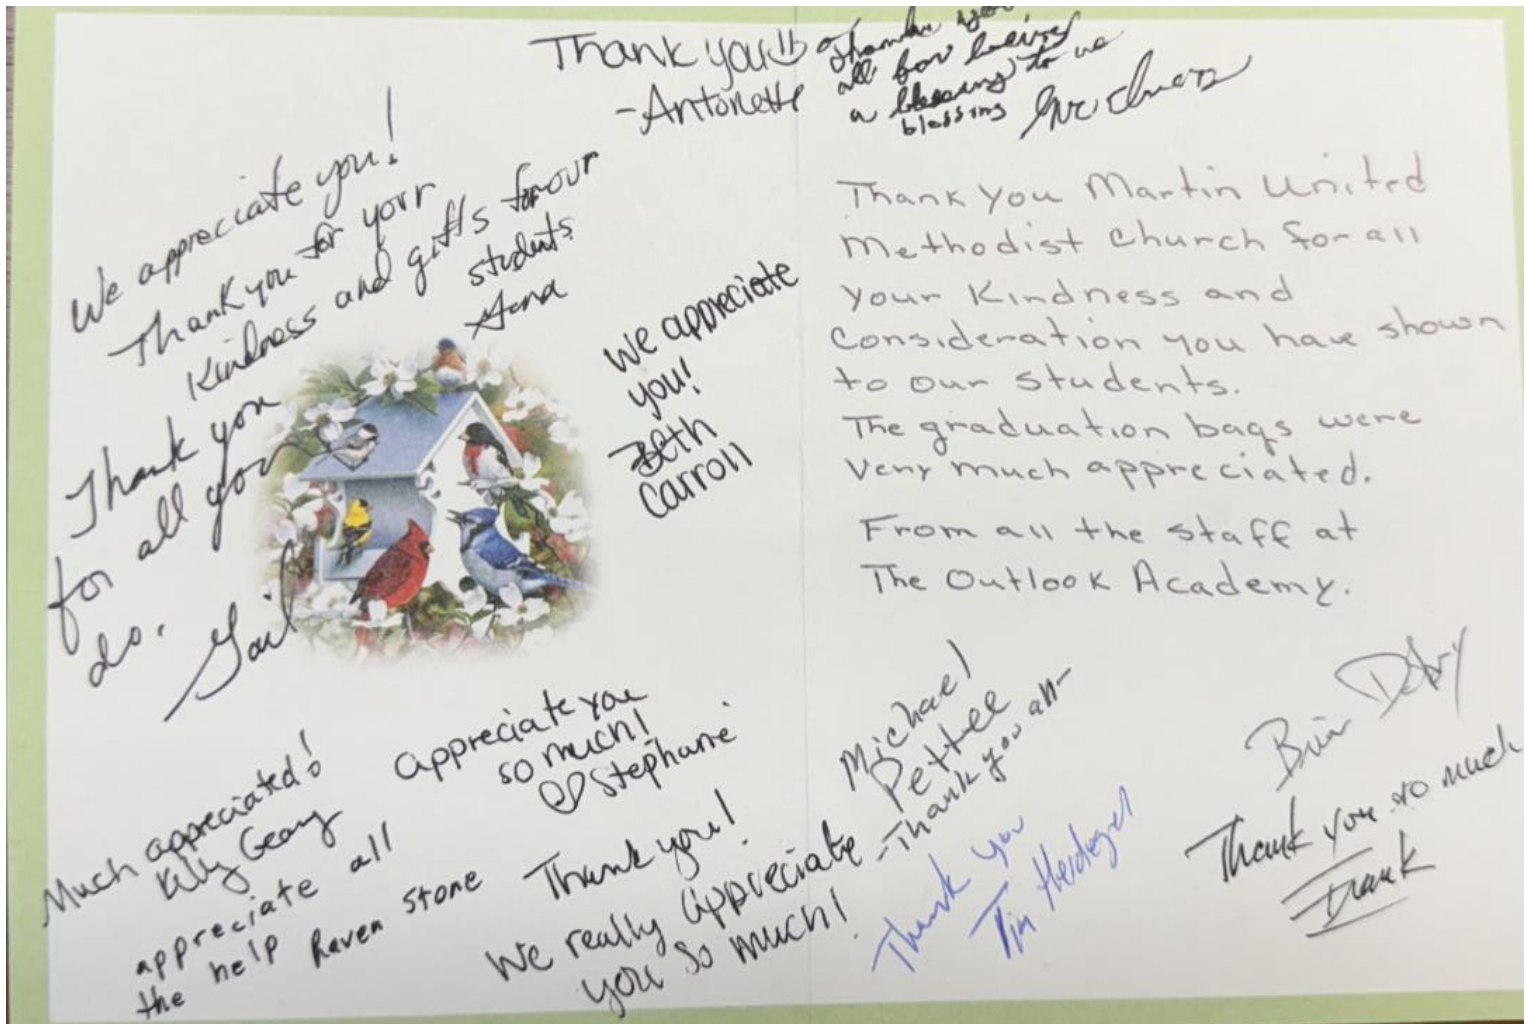 Thank you
-Antonette
Thank you
all for being
a blessing to us
blessing
We appreciate you!
Thank you for your
Kindness and gifts for our
students
Thank you
for all you
do.
Gail
We appreciate
you!
Beth
Carroll
Thank you Martin United
Methodist Church for all
your Kindness and
Consideration you have shown
to our students.
The graduation bags were
very much appreciated.
From all the staff at
The Outlook Academy.
Much appreciated!
Kelly Geary
appreciate all
the help Raven Stone
appreciate you
so much!
Stephanie
Thank you!
We really appreciate
you so much!
Michael
Pettee
-Thank you all-
Thank you
Tim
Brian
Thank you so much
Frank